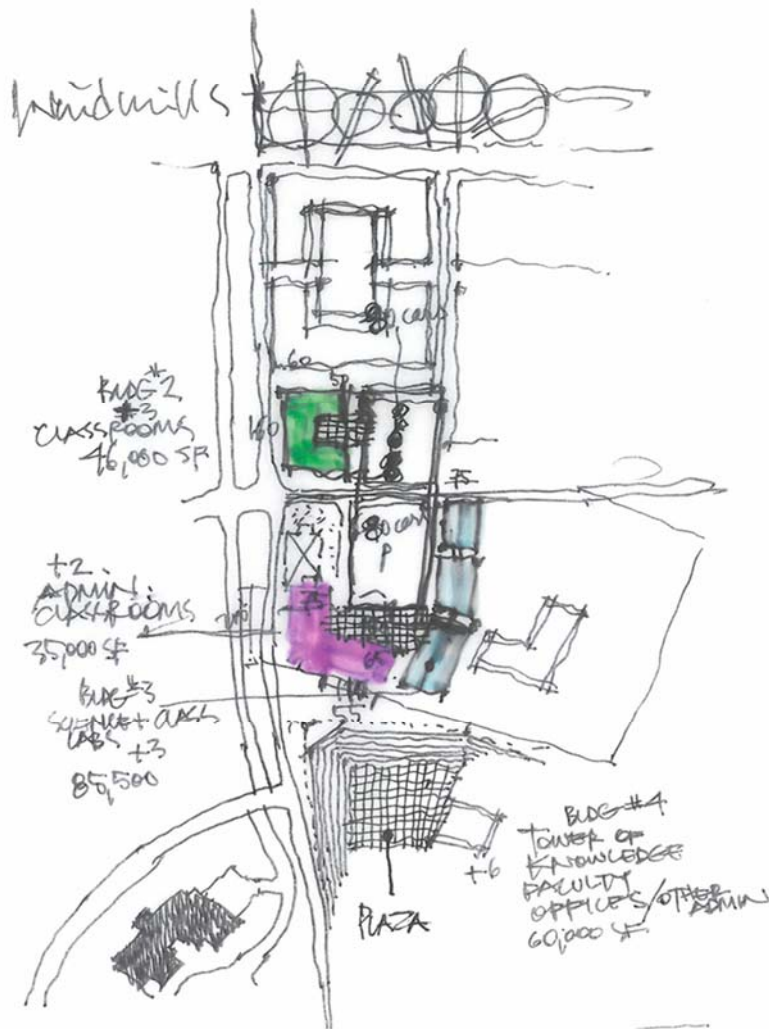 Windmills
80 cars
60
50
BLDG #2
#3
CLASSROOMS
46,000 SF
160
75
80 cars
P
+2
ADMIN.
CLASSROOMS
35,000 SF
75
65
BLDG #3
SCIENCE + CLASS
LABS +3
85,500
55
BLDG #4
TOWER OF
KNOWLEDGE
FACULTY
OFFICES/OTHER
ADMIN
60,000 SF
+6
PLAZA